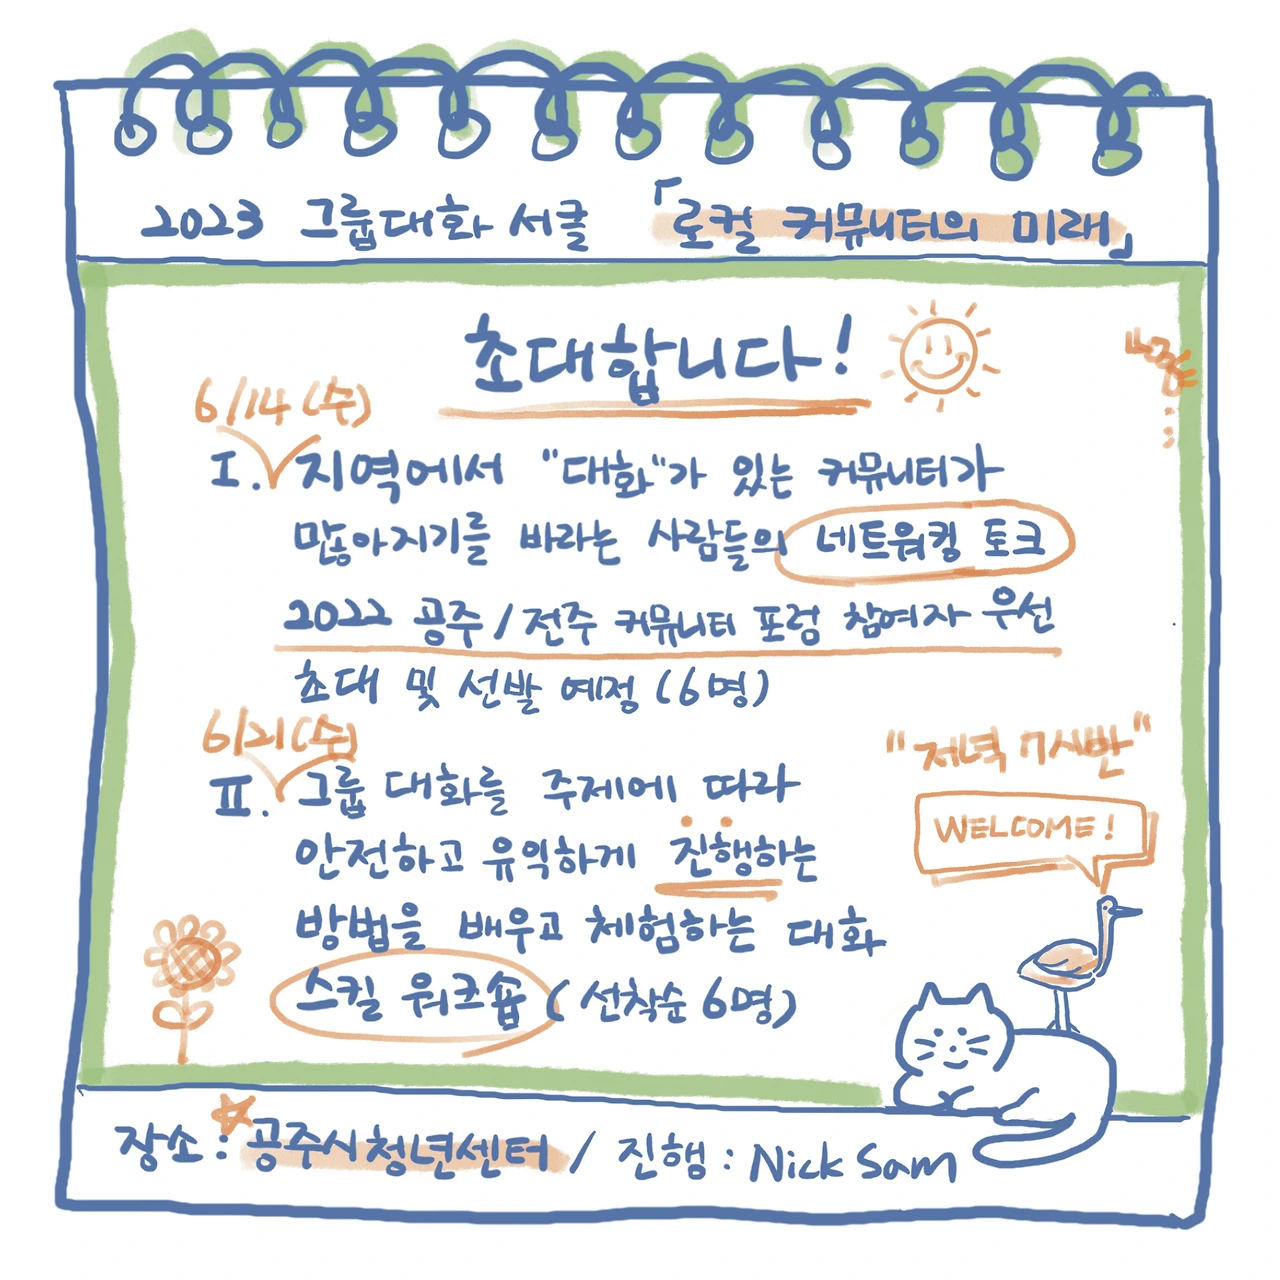 2023 그룹대화 서클 「로컬 커뮤니티의 미래」
초대합니다!
6/14 (수)
I. 지역에서 "대화"가 있는 커뮤니티가
많아지기를 바라는 사람들의 네트워킹 토크
2022 공주/전주 커뮤니티 포럼 참여자 우선
초대 및 선발 예정 (6명)
6/21 (수)
II. 그룹 대화를 주제에 따라
안전하고 유익하게 진행하는
방법을 배우고 체험하는 대화
스킬 워크숍 (선착순 6명)
"저녁 7시반"
WELCOME!
장소 : 공주시청년센터 / 진행 : Nick Sam